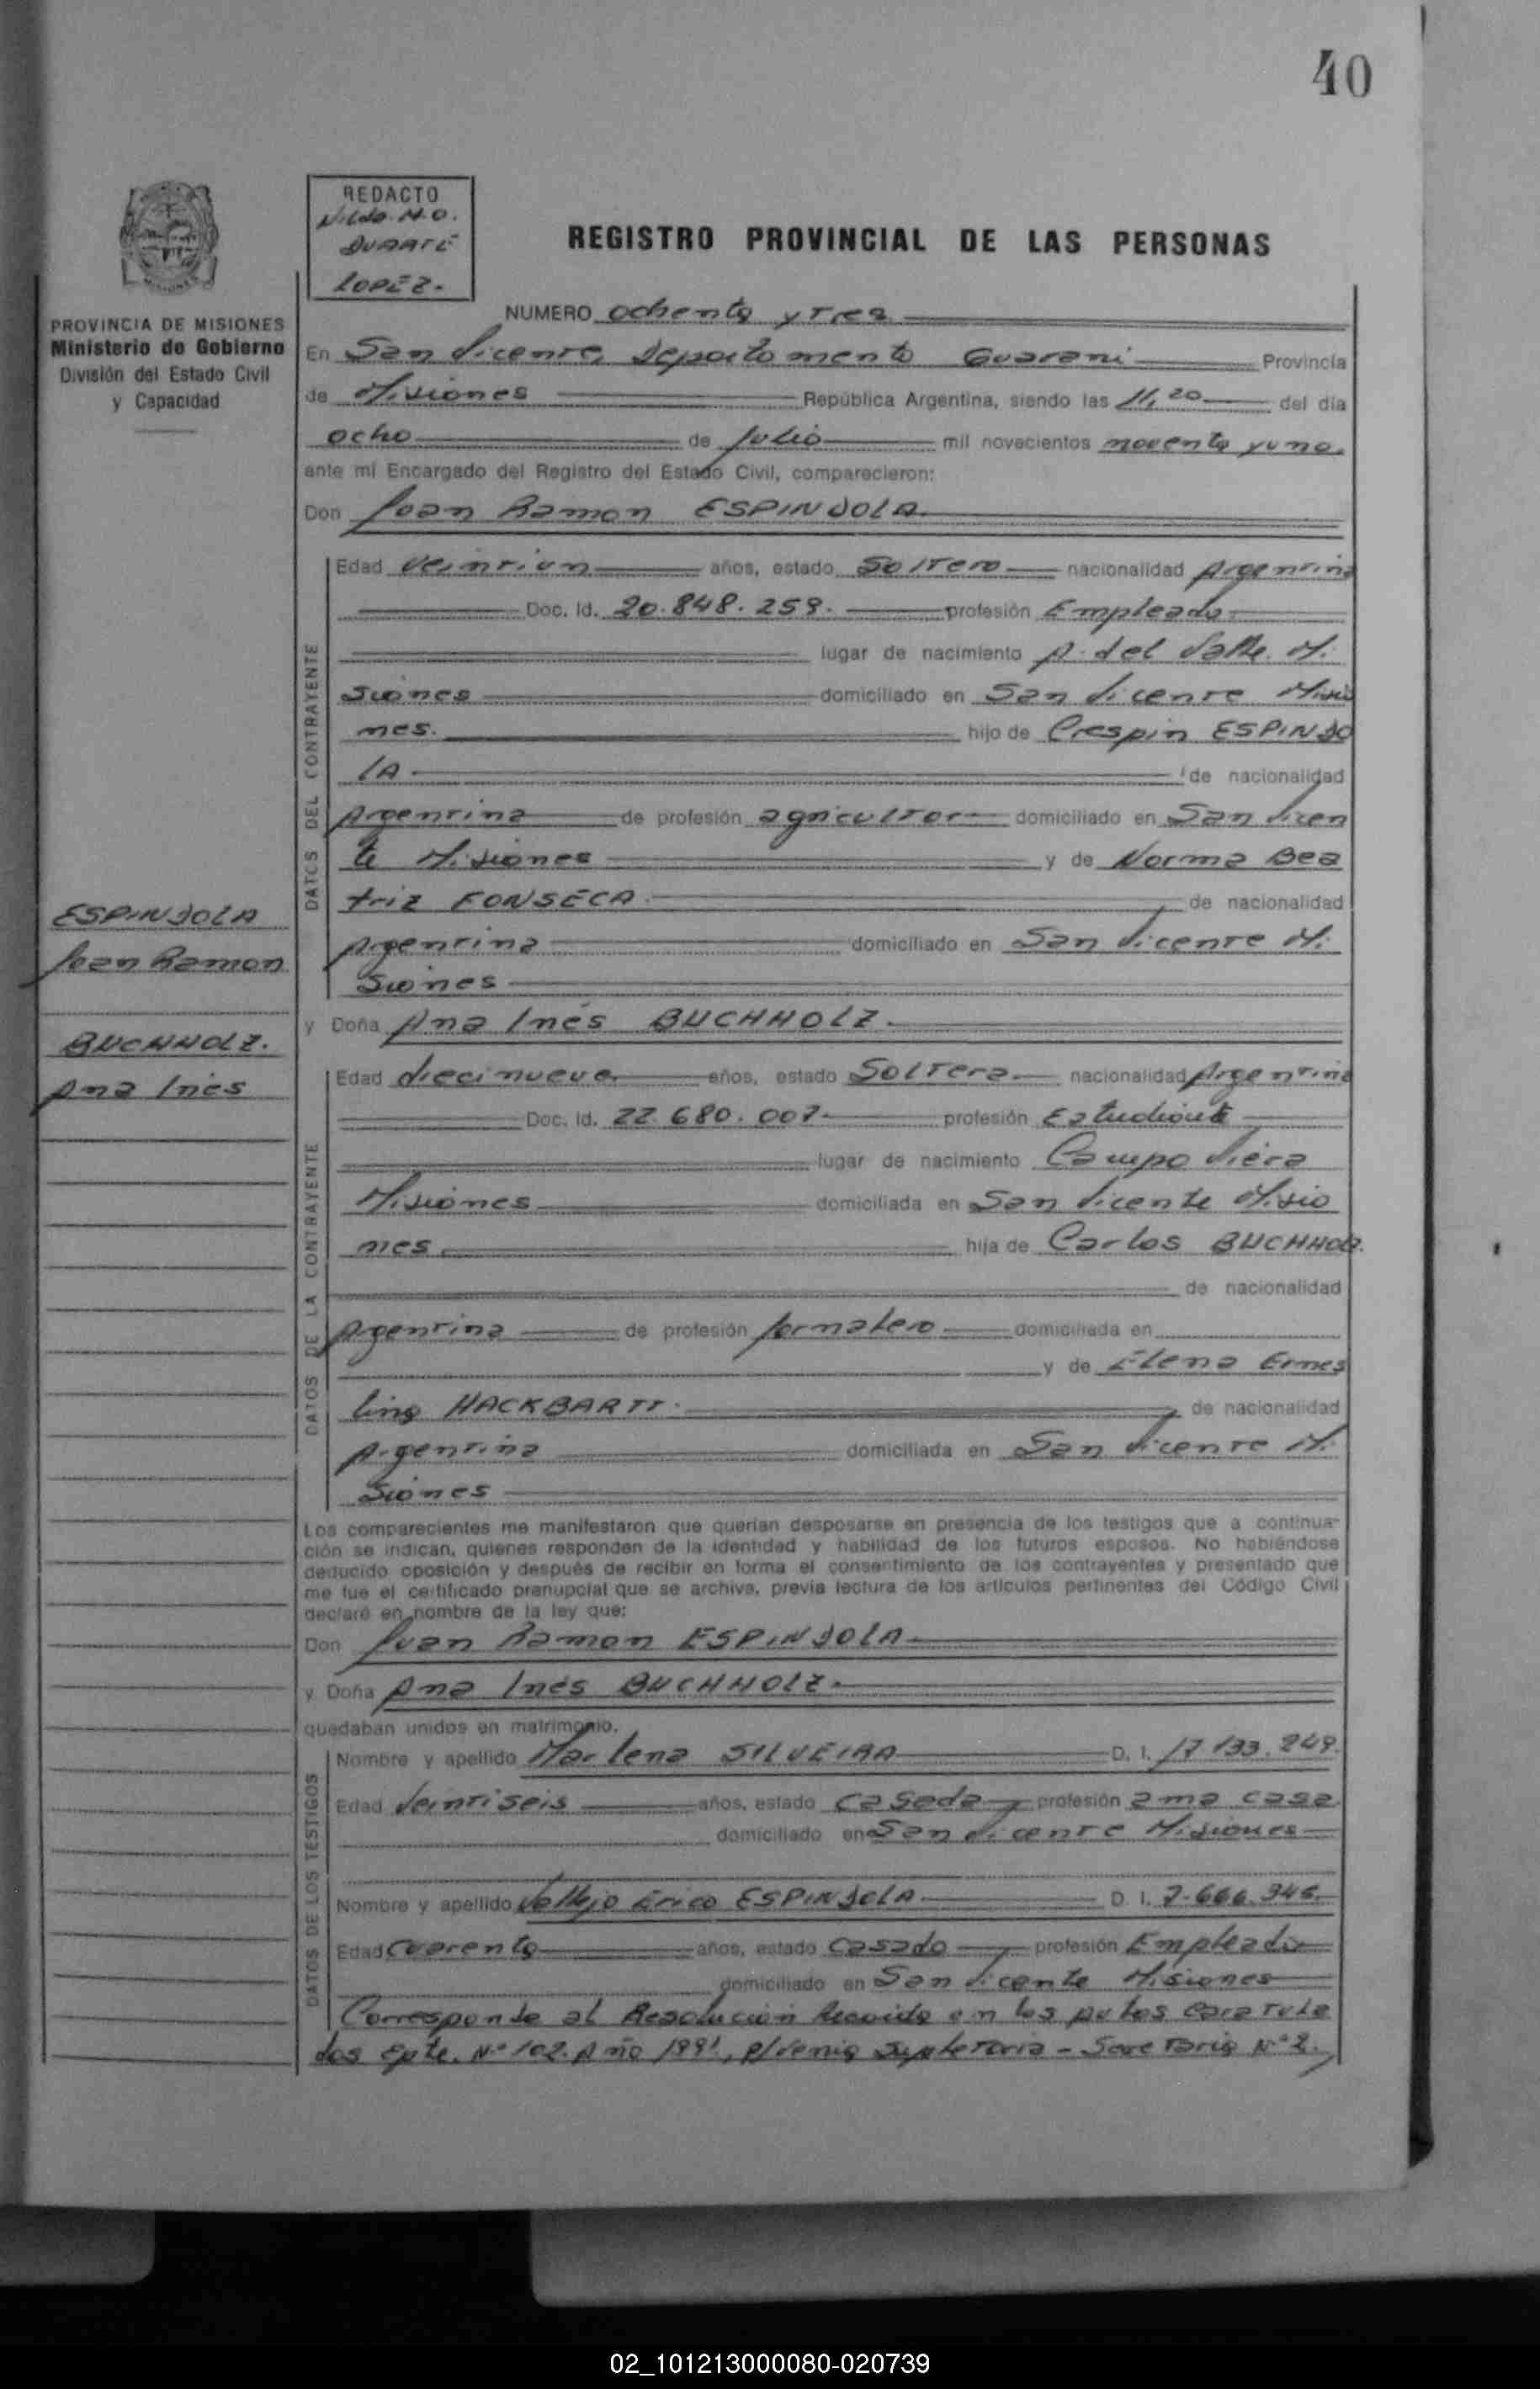 40
REDACTO
Nilda. M.O.
DUARTE
LOPEZ.-
REGISTRO PROVINCIAL DE LAS PERSONAS
PROVINCIA DE MISIONES
Ministerio de Gobierno
División del Estado Civil
y Capacidad
NUMERO ochenta y Tres
En San Vicente, Departamento Guarani Provincia
de Misiones República Argentina, siendo las 11,20 del día
ocho de Julio mil novecientos noventa y uno.
ante mi Encargado del Registro del Estado Civil, comparecieron:
Don Juan Ramon ESPINDOLA
DATOS DEL CONTRAYENTE
Edad Veintiun años, estado Soltero nacionalidad Argentina
Doc. Id. 20.848.259. profesión Empleado.
lugar de nacimiento A. del Valle. Mi
siones domiciliado en San Vicente Misio
nes. hijo de Crespin ESPINDO
LA de nacionalidad
Argentina de profesión agricultor domiciliado en San Vicen
te Misiones y de Norma Bea
triz FONSECA de nacionalidad
Argentina domiciliado en San Vicente Mi
siones
ESPINDOLA
Juan Ramon
BUCHHOLZ.
Ana Inés
y Doña Ana Inés BUCHHOLZ
DATOS DE LA CONTRAYENTE
Edad diecinueve años, estado Soltera nacionalidad Argentina
Doc. Id. 22.680.007 profesión Estudiante
lugar de nacimiento Campo Viera
Misiones domiciliada en San Vicente Misio
nes hija de Carlos BUCHHOLZ.
de nacionalidad
Argentina de profesión Jornalero domiciliada en
y de Elena Ernes
tina HACKBARTT. de nacionalidad
Argentina domiciliada en San Vicente Mi
siones
Los comparecientes me manifestaron que querían desposarse en presencia de los testigos que a continua-
ción se indican, quienes responden de la identidad y habilidad de los futuros esposos. No habiéndose
deducido oposición y después de recibir en forma el consentimiento de los contrayentes y presentado que
me fue el certificado prenupcial que se archiva, previa lectura de los artículos pertinentes del Código Civil
declaré en nombre de la ley que:
Don Juan Ramon ESPINDOLA
y Doña Ana Inés BUCHHOLZ.
quedaban unidos en matrimonio.
DATOS DE LOS TESTIGOS
Nombre y apellido Marlena SILVEIRA D. I. 17.133.249.
Edad Veintiseis años, estado Casada profesión ama casa
domiciliado en San Vicente Misiones
Nombre y apellido Vallejo Erico ESPINDOLA D. I. 7.666.346.
Edad Cuarenta años, estado Casado profesión Empleado
domiciliado en San Vicente Misiones
Corresponde al Resolución Recaida en los autos caratula
dos Epte. Nº 102. Año 1991, p/Venia Supletoria - Secretaria Nº 2.
02_101213000080-020739